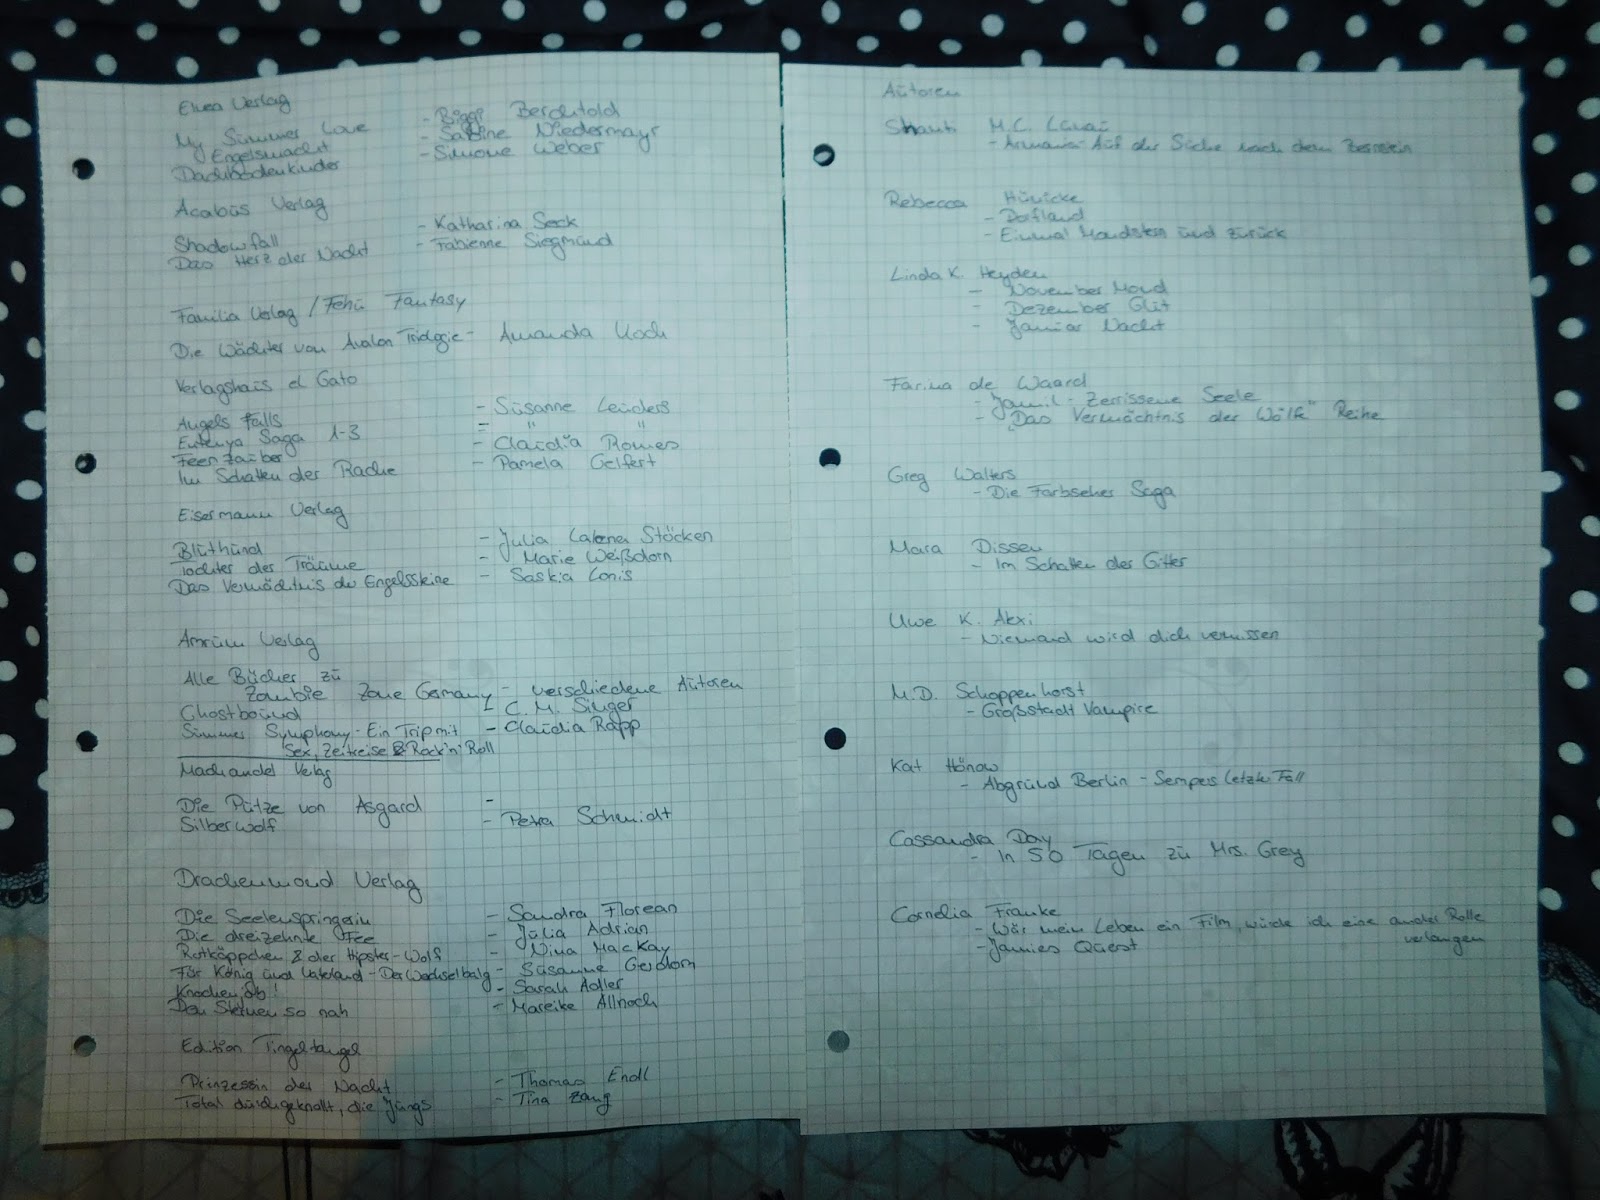 Elvea Verlag
My Summer Love - Biggi Berchtold
Engelsmacht - Sabine Niedermayr
Dachbodenkinder - Simone Weber
Acabus Verlag
Shadowfall - Katharina Seck
Das Herz der Nacht - Fabienne Siegmund
Familia Verlag / Fehu Fantasy
Die Wächter von Avalon Triologie - Amanda Koch
Verlagshaus el Gato
Angels Falls - Susanne Leuders
Saga 1-3 - " "
Feenzauber - Claudia Romes
Im Schatten der Rache - Pamela Gelfert
Eisermann Verlag
Bluthund - Julia Stöcken
Tochter der Träume - Marie Weißdorn
Das Vermächtnis der Engelssteine - Saskia Louis
Amrûn Verlag
Alle Bücher zu
Zombie Zone Germany - verschiedene Autoren
Ghostbound - C. M. Singer
Summer Symphony - Ein Trip mit - Claudia Rapp
Sex, Zeitreise & Rock'n'Roll
Machandel Verlag
Die Pütze von Asgard -
Silberwolf - Petra Schmidt
Drachenmond Verlag
Die Seelenspringerin - Sandra Florean
Die dreizehnte Fee - Julia Adrian
Rotkäppchen & der Hipster-Wolf - Nina MacKay
Für König und Vaterland - Der Wechselbalg - Susanne Gerdom
Knochenjob! - Sarah Adler
Den Sternen so nah - Mareike Allnoch
Edition Tingeltangel
Prinzessin der Nacht - Thomas Endl
Total durchgeknallt, die Jungs - Tina Zang
Autoren
M.C. Lunai
- Auf der Suche nach dem Bernstein
Rebecca Hünicke
- Dorfland
- Einmal Mondstern und zurück
Linda K. Heyden
- November Mond
- Dezember Glut
- Januar Nacht
Farina de Waard
- Jamil - Zerrissene Seele
- „Das Vermächtnis der Wölfe" Reihe
Greg Walters
- Die Farbseher Saga
Mara Dissen
- Im Schatten des Gitter
Uwe K. Alexi
- Niemand wird dich vermissen
M.D. Schoppenhorst
- Großstadt Vampire
Kat Hönow
- Abgrund Berlin - Sempers letzter Fall
Cassandra Day
- In 50 Tagen zu Mrs. Grey
Cornelia Franke
- Wär mein Leben ein Film, würde ich eine andere Rolle
verlangen
- Jamies Quest